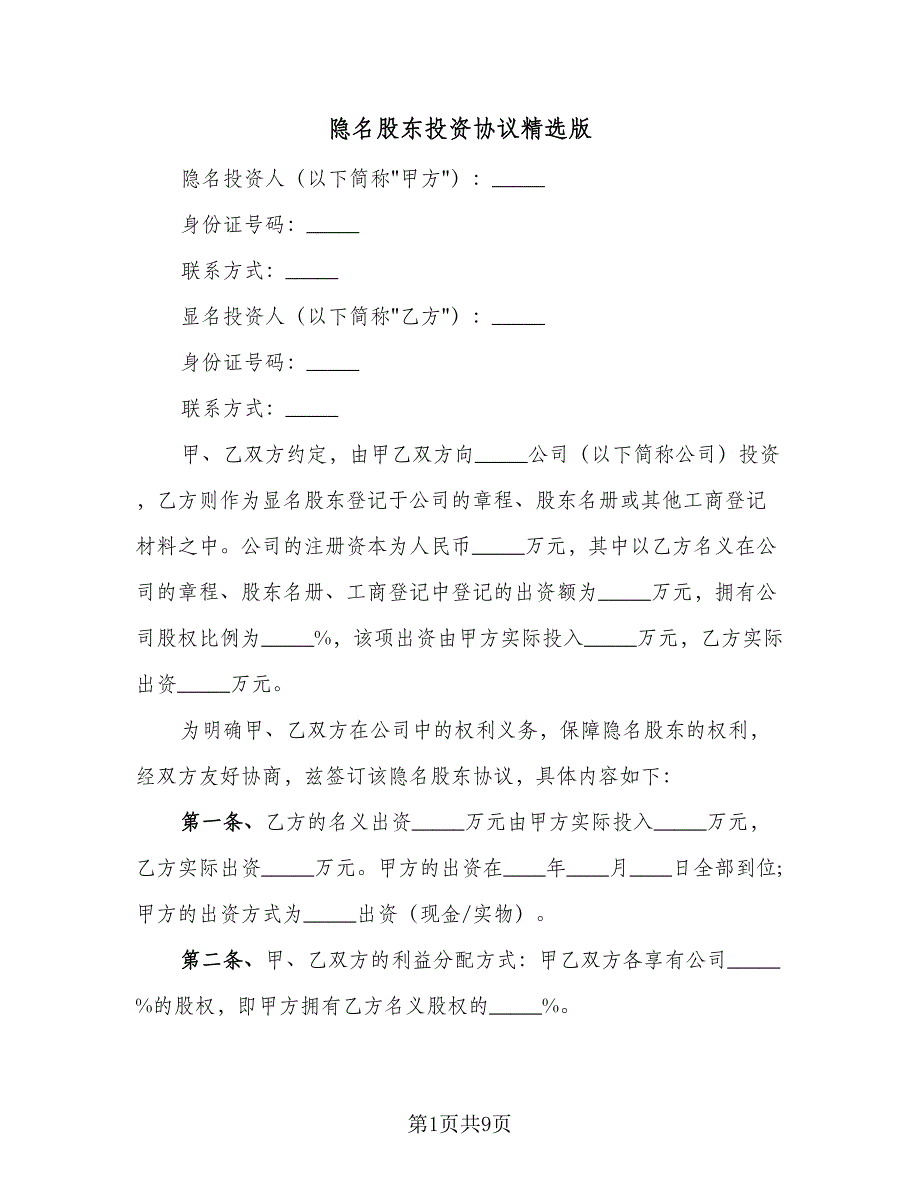 隐名股东投资协议精选版
隐名投资人（以下简称"甲方"）：_____
身份证号码：_____
联系方式：_____
显名投资人（以下简称"乙方"）：_____
身份证号码：_____
联系方式：_____
甲、乙双方约定，由甲乙双方向_____公司（以下简称公司）投资
，乙方则作为显名股东登记于公司的章程、股东名册或其他工商登记
材料之中。公司的注册资本为人民币_____万元，其中以乙方名义在公
司的章程、股东名册、工商登记中登记的出资额为_____万元，拥有公
司股权比例为_____%，该项出资由甲方实际投入_____万元，乙方实际
出资_____万元。
为明确甲、乙双方在公司中的权利义务，保障隐名股东的权利，
经双方友好协商，兹签订该隐名股东协议，具体内容如下：
第一条、乙方的名义出资_____万元由甲方实际投入_____万元，
乙方实际出资_____万元。甲方的出资在____年____月____日全部到位;
甲方的出资方式为_____出资（现金/实物）。
第二条、甲、乙双方的利益分配方式：甲乙双方各享有公司_____
%的股权，即甲方拥有乙方名义股权的_____%。
第1页共9页